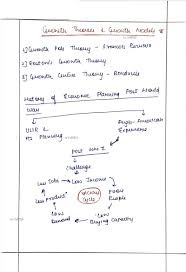 Growth Theories & Growth Models
1) Growth Pole Theory - Francois Perroux
2) Growth Theory
3) Growth Centre Theory - Boudeville
History of Economic Planning Post World
War
USSR & Anglo-American
its Planning Experience
Post WW I
Challenge
Low Income
Low Product Vicious Cycle Poor People
Low Demand Low Buying Capacity